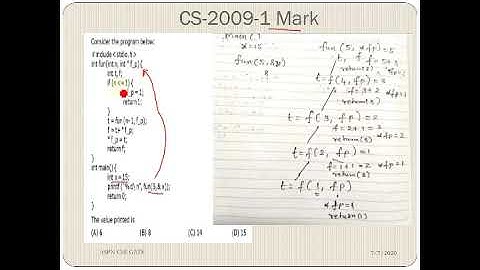 CS-2009-1 Mark
Consider the program below:
# include < stdio. h >
int fun(int n, int * f_p) {
int t, f;
if (n <= 1) {
*f_p = 1;
return 1;
}
t = fun (n - 1, f_p);
f = t + * f_p;
* f_p = t;
return f;
}
int main() {
int x = 15;
printf (" %d\ n", fun(5,& x));
return 0;
}
The value printed is
(A) 6 (B) 8 (C) 14 (D) 15
main ( )
x = 15
fun (5, &x)
8
fun (5, *fp) = 5
t, f
return (8)
t = f(4, fp) = 3
f = 3+2
return (5)
t = f (3, fp) = 2
f = 2+1 = 3
return (3)
t = f(2, fp) = 1
f = 1+1 = 2
return (2)
t = f(1, fp)
*fp = 1
return (1)
7/7/2020